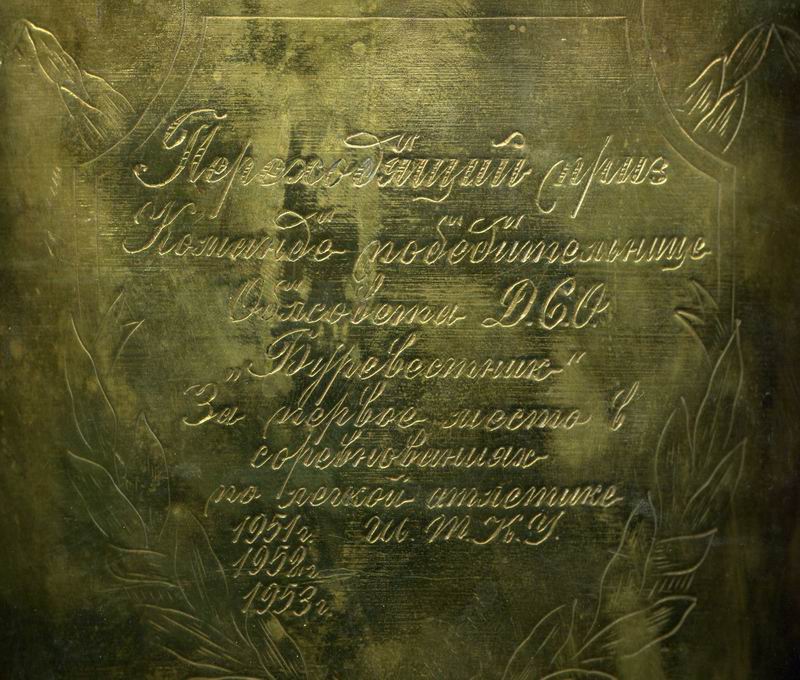 Переходящий приз
Команде победительнице
Облсовета Д.С.О.
„Буревестник“
За первое место в
соревнованиях
по легкой атлетике
1951г. Ив. Т.К.У.
1952г.
1953г.